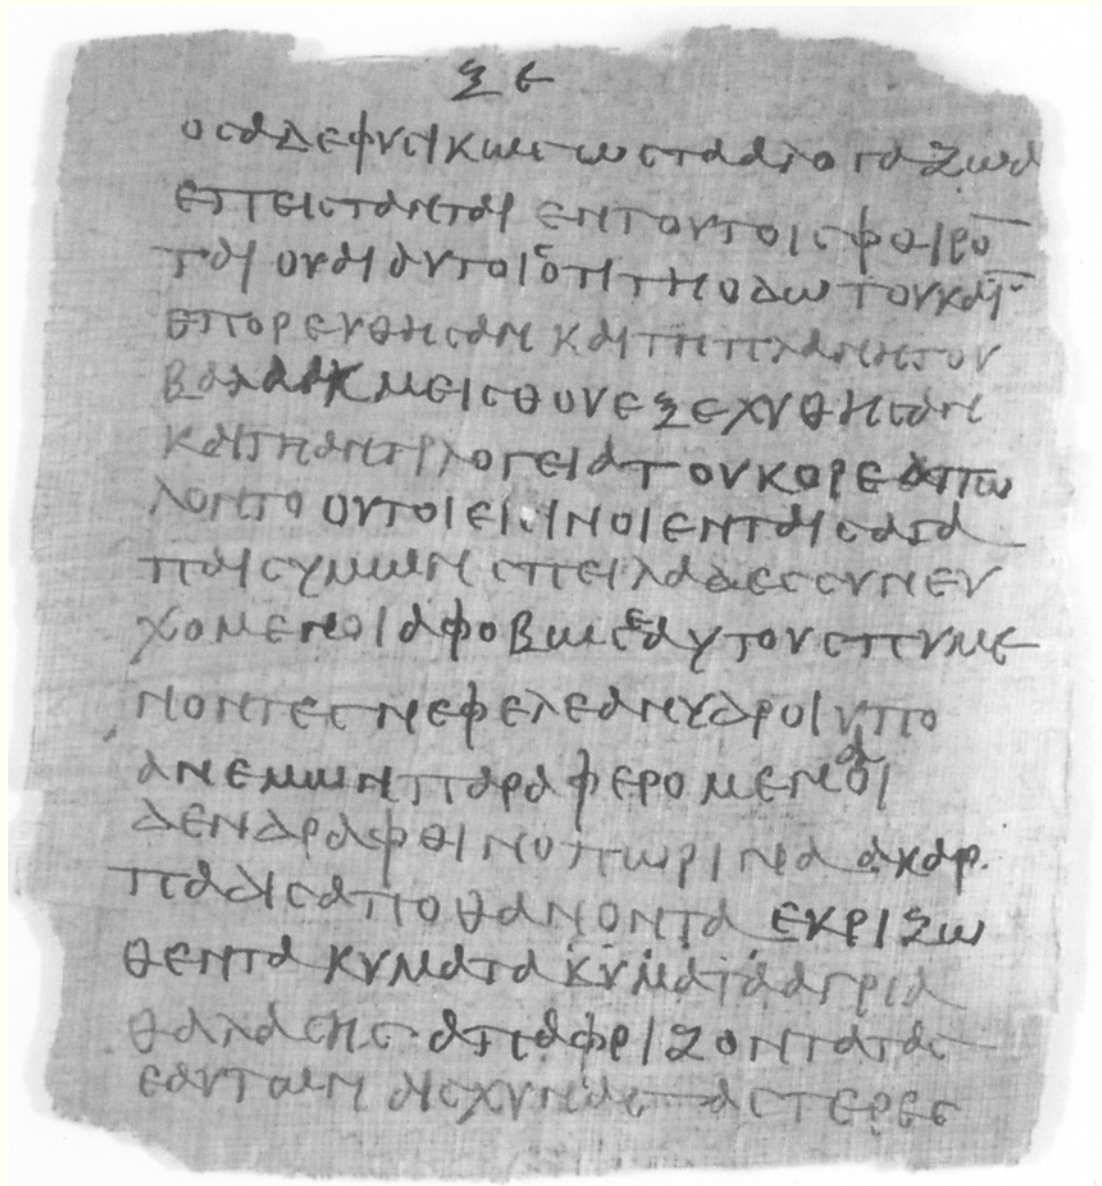 ξε
οσα δε φυσικως ως τα αλογα ζωα
επειστανται εν τουτοις φθιρο̄
ται ουαι αυτοις οτι τη οδω του καϊ̄
επορευθησαν και τη πλανη του
βαλαακ μεισθου εξεχυθησαν
και τη αντιλογεια του κορε απω
λοντο ουτοι εισιν οι εν ταις αγα
παις υμων σπειλαδες συνευ
χομενοι αφοβως εαυτους πυμε
νοντες νεφελε ανυδροι υπο
ανεμων παραφερομεναι
δενδρα φθινοπωρινα ακαρ
πα δις αποθανοντα εκριζω
θεντα κυματα κυματα αγρια
θαλασης απαφριζοντα τας
εαυτων αισχυνας αστερες